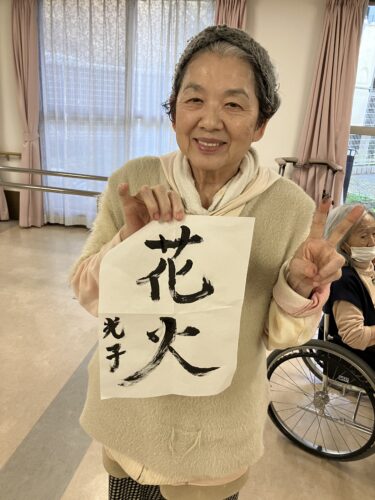 花火
光子